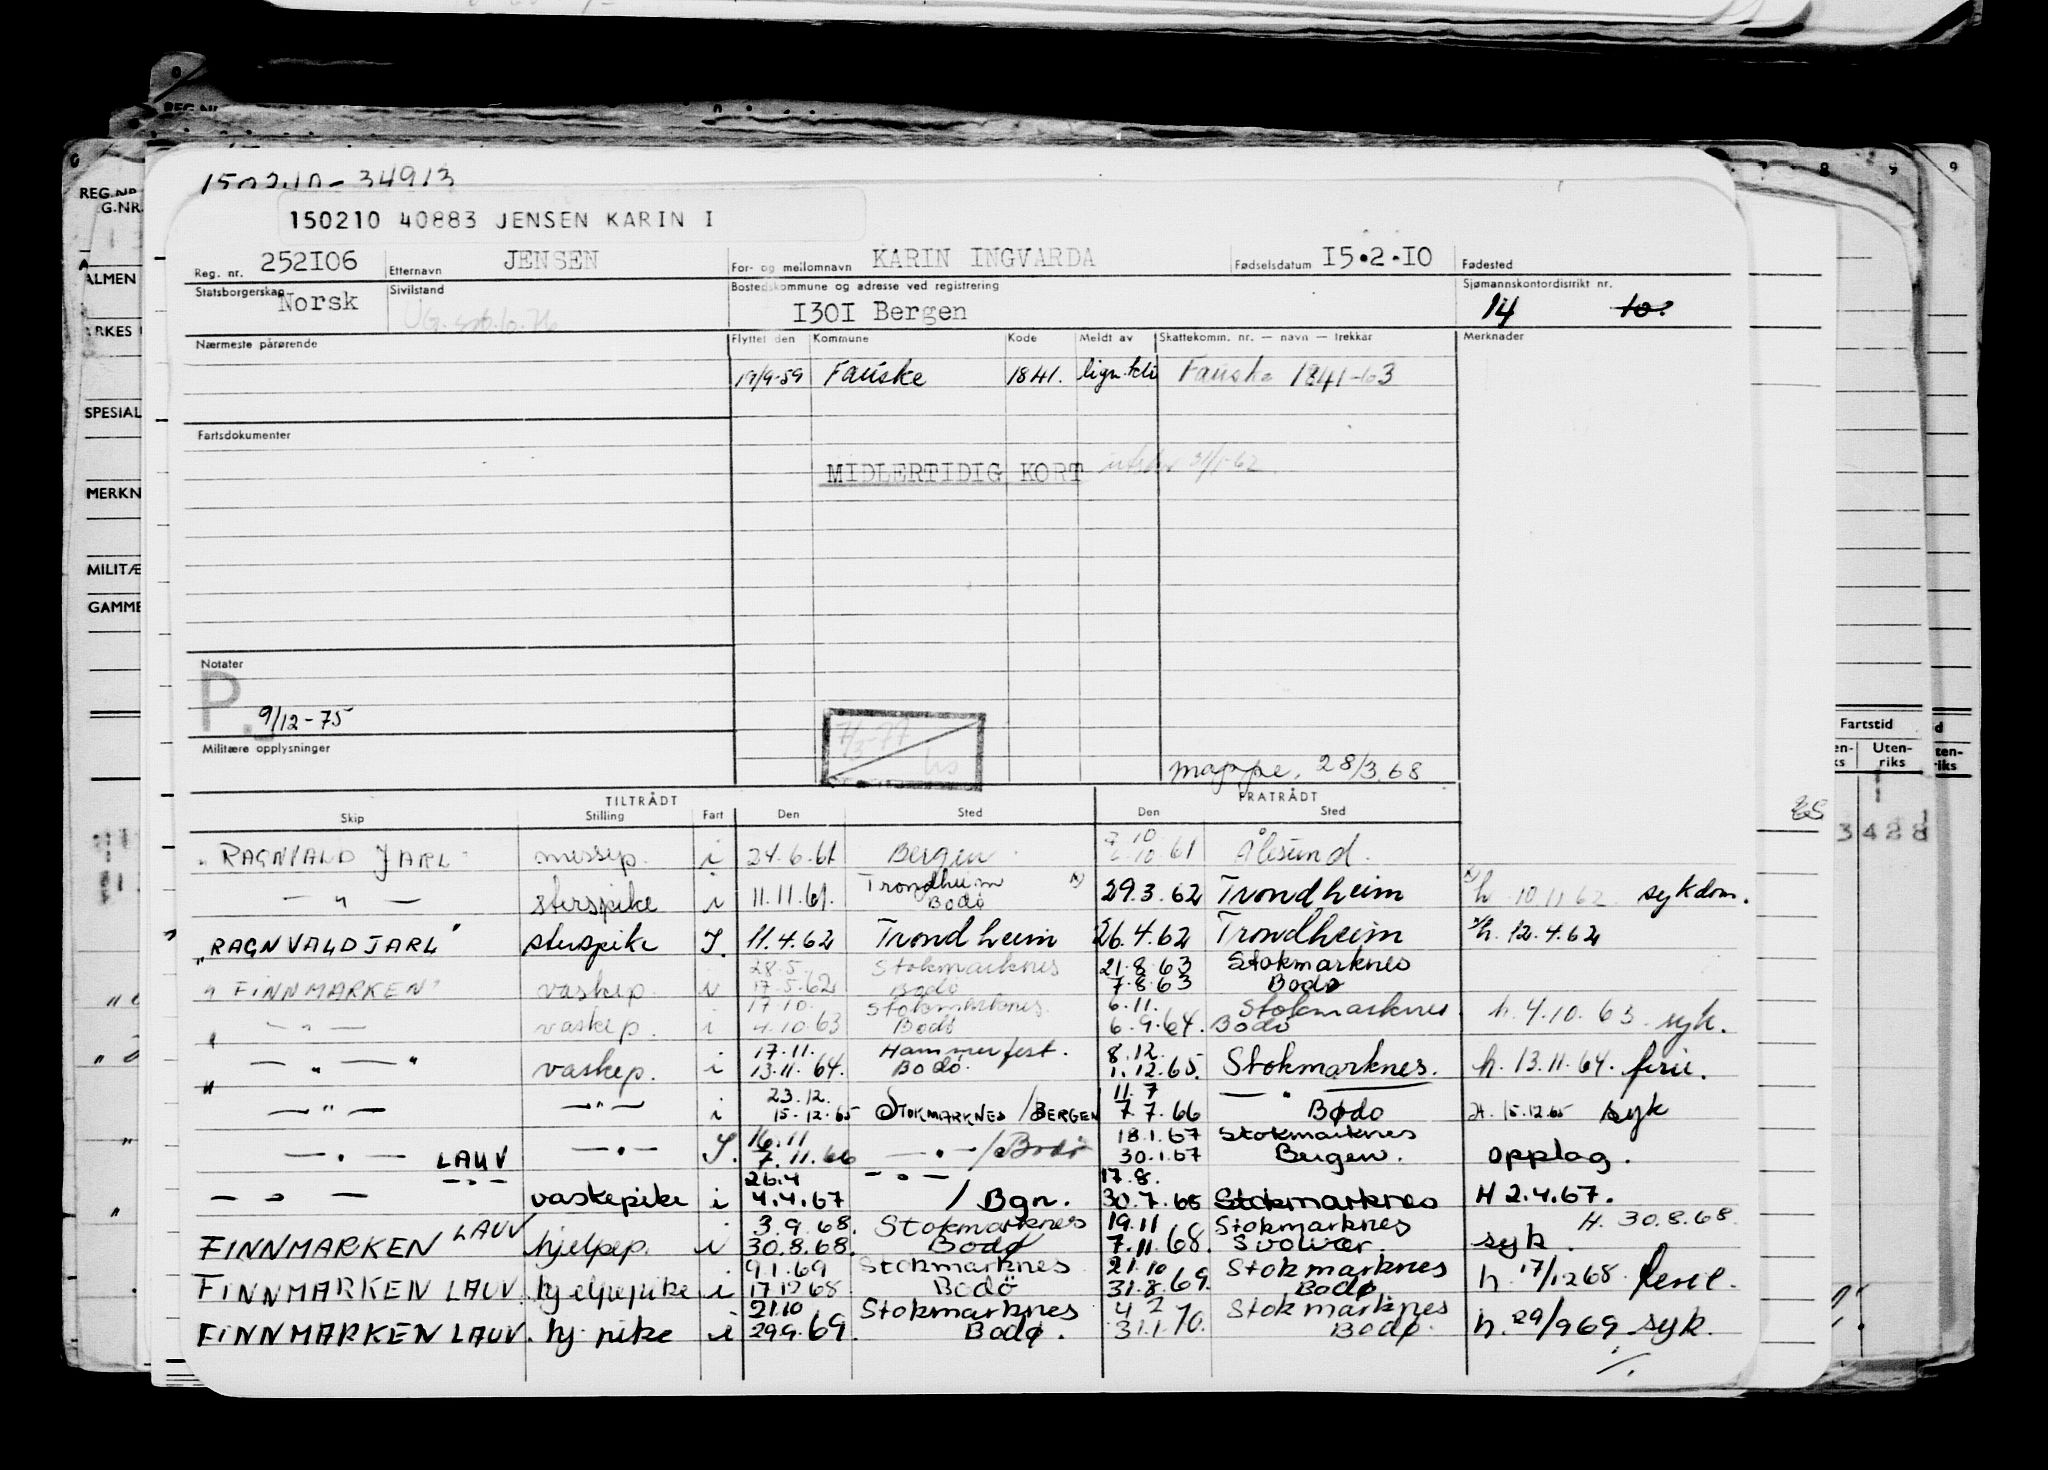 150210 - 34913
150210 40883 JENSEN KARIN I
Reg. nr. 252I06 Etternavn JENSEN For- og mellomnavn KARIN INGVARDA Fødselsdatum I5.2.I0 Fødested
Statsborgerskap Norsk Sivilstand Bostedskommune og adresse ved registrering I30I Bergen Sjømannskontordistrikt nr. 14 10.
Nærmeste pårørende Flyttet den Kommune Kode Meldt av Skattekomm. nr. — navn — trekkar Merknader
19/9-59 Fauske 1841. Fauske 1841-63
Fartsdokumenter
MIDLERTIDIG KORT 31/1-62
Notater
P. 9/12-75
Militære opplysninger
7/3-77
hs
mappe. 28/3.68
TILTRÅDT FRATRÅDT
Skip Stilling Fart Den Sted Den Sted
"RAGNVALD JARL" messep. i 24.6.61 Bergen 10.61 Ålesund.
— " — sterspike i 11.11.61. Trondheim Bodø 29.3.62 Trondheim h. 10.11.62 sykdom.
"RAGNVALD JARL" sterspike I. 11.4.62 Trondheim 26.4.62 Trondheim h. 12.4.62
28.5. Stokmarknes 21.8.63 Stokmarknes
"FINNMARKEN" vaskep. i 17.5.62 Bodø 7.8.63 Bodø
17.10. Stokmarknes. 6.11. Stokmarknes
" — " — vaskep. i 4.10.63 Bodø 6.9.64. Bodø h. 4.10.63 syk.
17.11. Hammerfest. 8.12.
" — " — " vaskep. i 13.11.64. Bodø. 1.12.65. Stokmarknes. h. 13.11.64. ferie.
23.12. 11.7 — " —
— " — — " — i 15.12.65 STOKMARKNES / BERGEN 7.7.66 Bodø H. 15.12.65 syk
16.11 18.1.67 Stokmarknes
— " — LAUV — " — I. 7.11.66 — " — / Bodø 30.1.67 Bergen. opplag.
26.4 — " — 17.8.
— " — — " — vaskepike i 4.4.67 / Bgn. 30.7.68 Stokmarknes H 2.4.67.
3.9.68. Stokmarknes 19.11 Stokmarknes H. 30.8.68.
FINNMARKEN LAUV hjelpep. i 30.8.68. Bodø 7.11.68. Svolvær. syk.
9.1.69 Stokmarknes 21.10 Stokmarknes
FINNMARKEN LAUV. hjelpepike i 17.12.68 Bodö 31.8.69. Bodø h. 17/12 68. ferie.
21.10 Stokmarknes 4.2 Stokmarknes
FINNMARKEN LAUV. hj. pike i 29.9.69. Bodø. 31.1.70. Bodø. h. 29/9 69 syk.
REG.NR.
G.NR.
ALMEN
ARKES
SPESIAL
MERKN
MILITÆ
GAMME
8 9 9
Fartstid
Uten-
riks
3 428